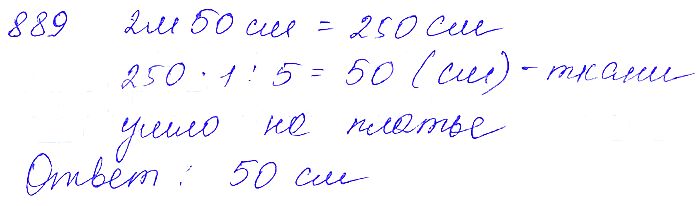 889 2м 50 см = 250 см
250 · 1 : 5 = 50 (см) - ткани
ушло на платье
Ответ: 50 см